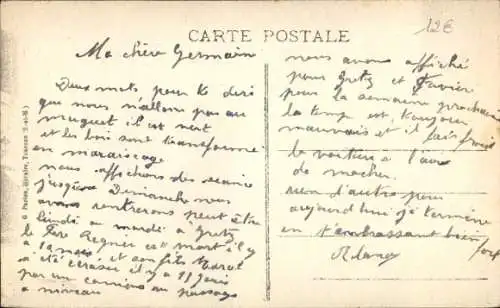 CARTE POSTALE
128
Ma chère Germaine
Deux mots pour te dire
que nous n'allons pas au
muguet il est vert
et les bois sont transformé
en marécage
nous affichons des séance
jusqu'a Dimanche nous
rentrerons peut être
lundi ou mardi à Gretz
le Père Regnier est mort il y
a 1 mois et son fils Marcel
a été écrasé il y a 11 jours
par un camion au passage
a niveau
nous avons affiché
pour Gretz et
pour la semaine prochaine
le temp est toujours
mauvais et il fait froid
la voiture à l'air
de marcher
rien d'autre pour
aujourd'hui je termine
en t'embrassant bien fort
Libraire, Tournan (S.-et-M.)